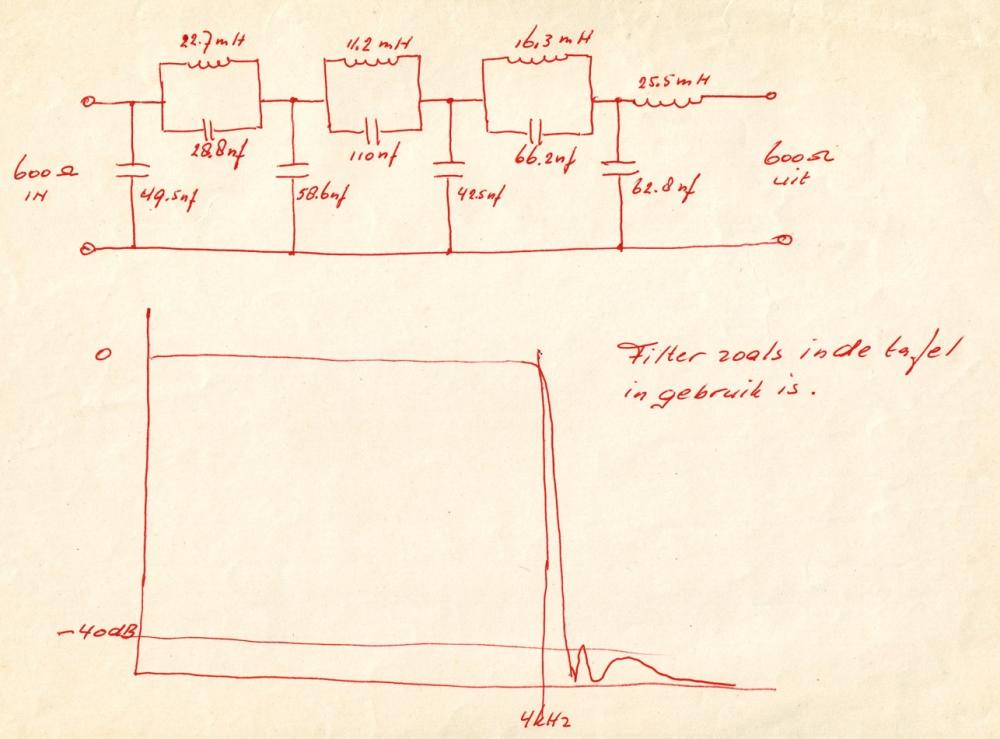 22.7mH
11.2mH
16.3mH
25.5mH
28.8nf
110nf
66.2nf
600Ω
IN
49.5nf
58.6nf
42.5nf
62.8nf
600Ω
uit
0
Filter zoals in de tafel
in gebruik is.
-40dB
4kHz